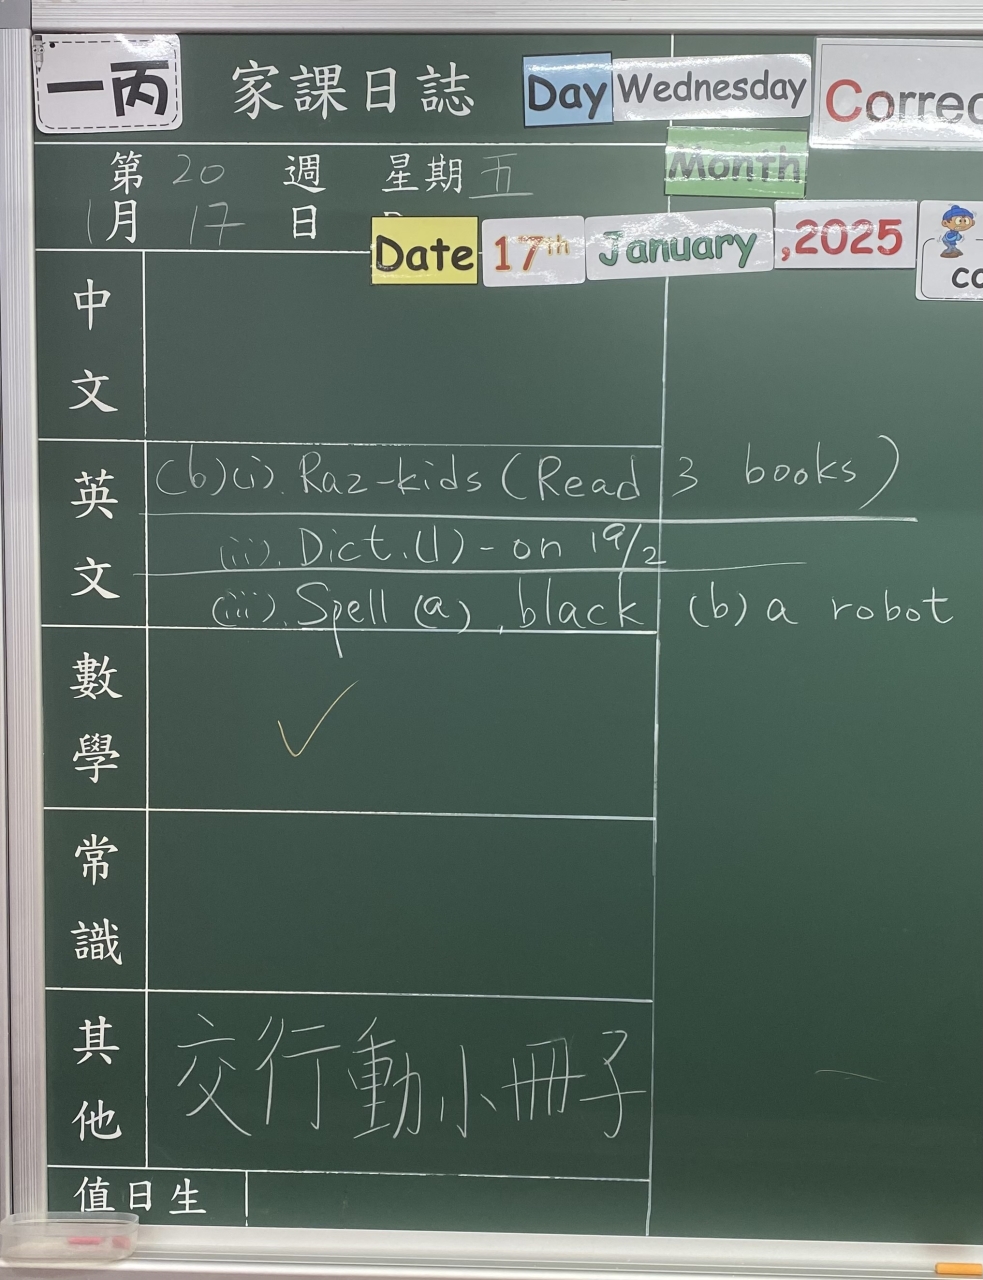 一丙 家課日誌 Day Wednesday Correc
第 20 週 星期 五 Month
1月 17 日 Date 17th January ,2025 co
中文
英文 (b)(i). Raz-kids (Read 3 books)
(ii). Dict.(1) - on 19/2
(iii). Spell (a). black (b) a robot
數學 ✓
常識
其他 交行動小冊子
值日生